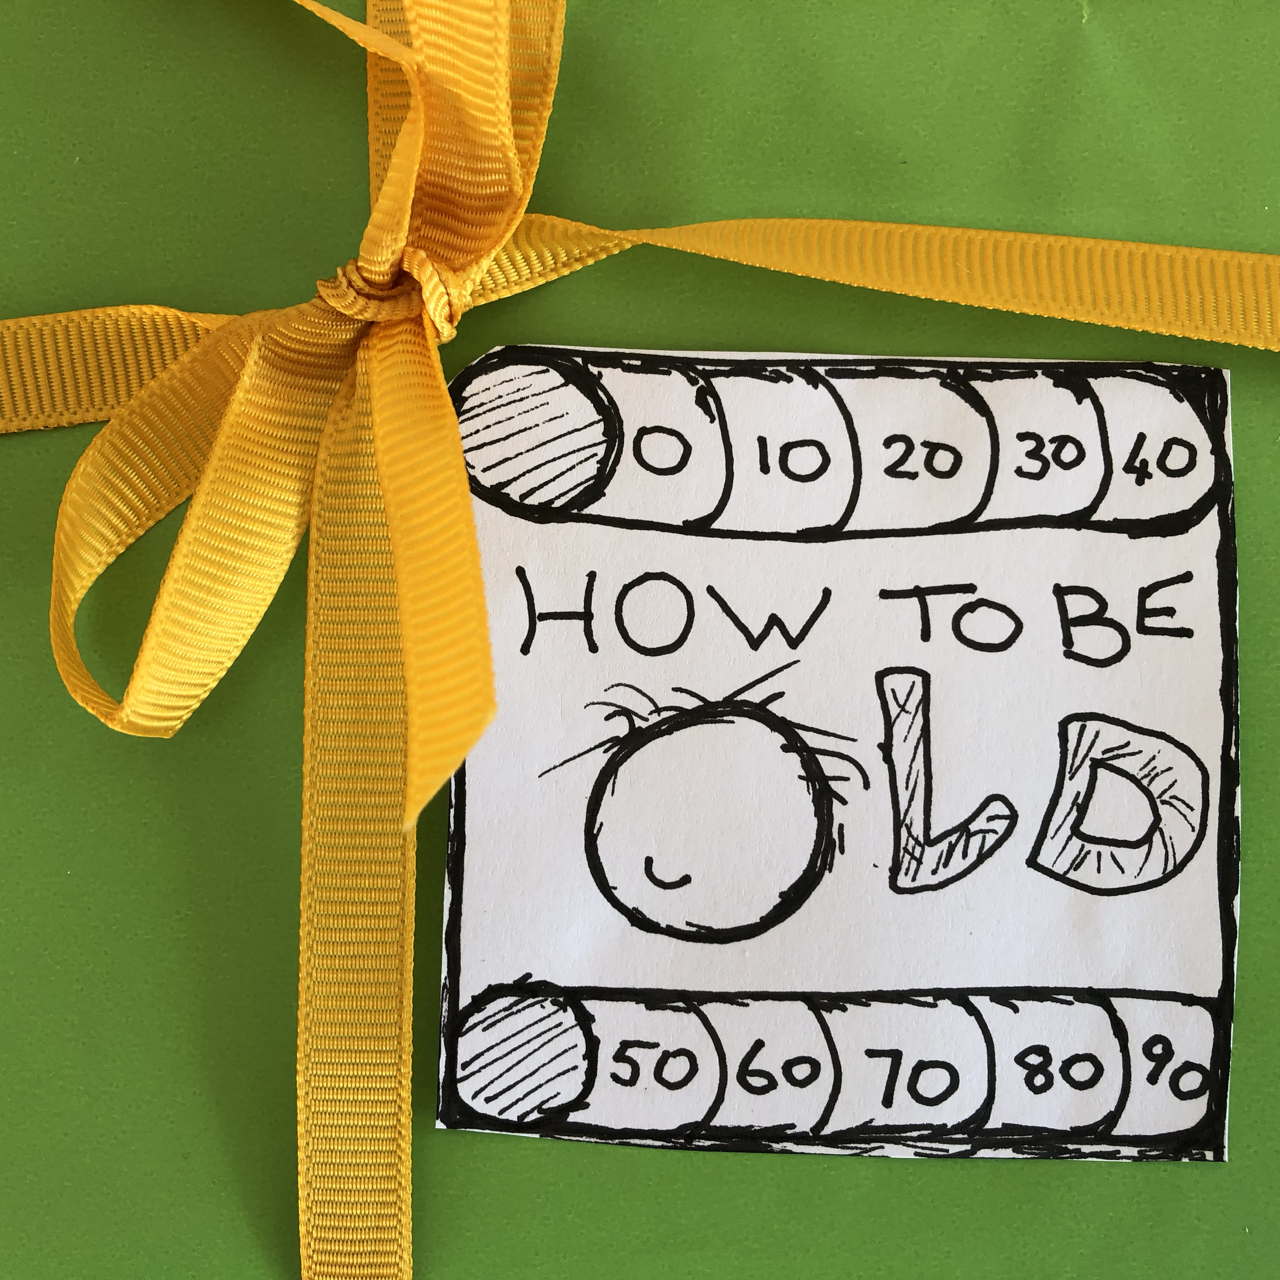 0 10 20 30 40
HOW TO BE
OLD
50 60 70 80 90